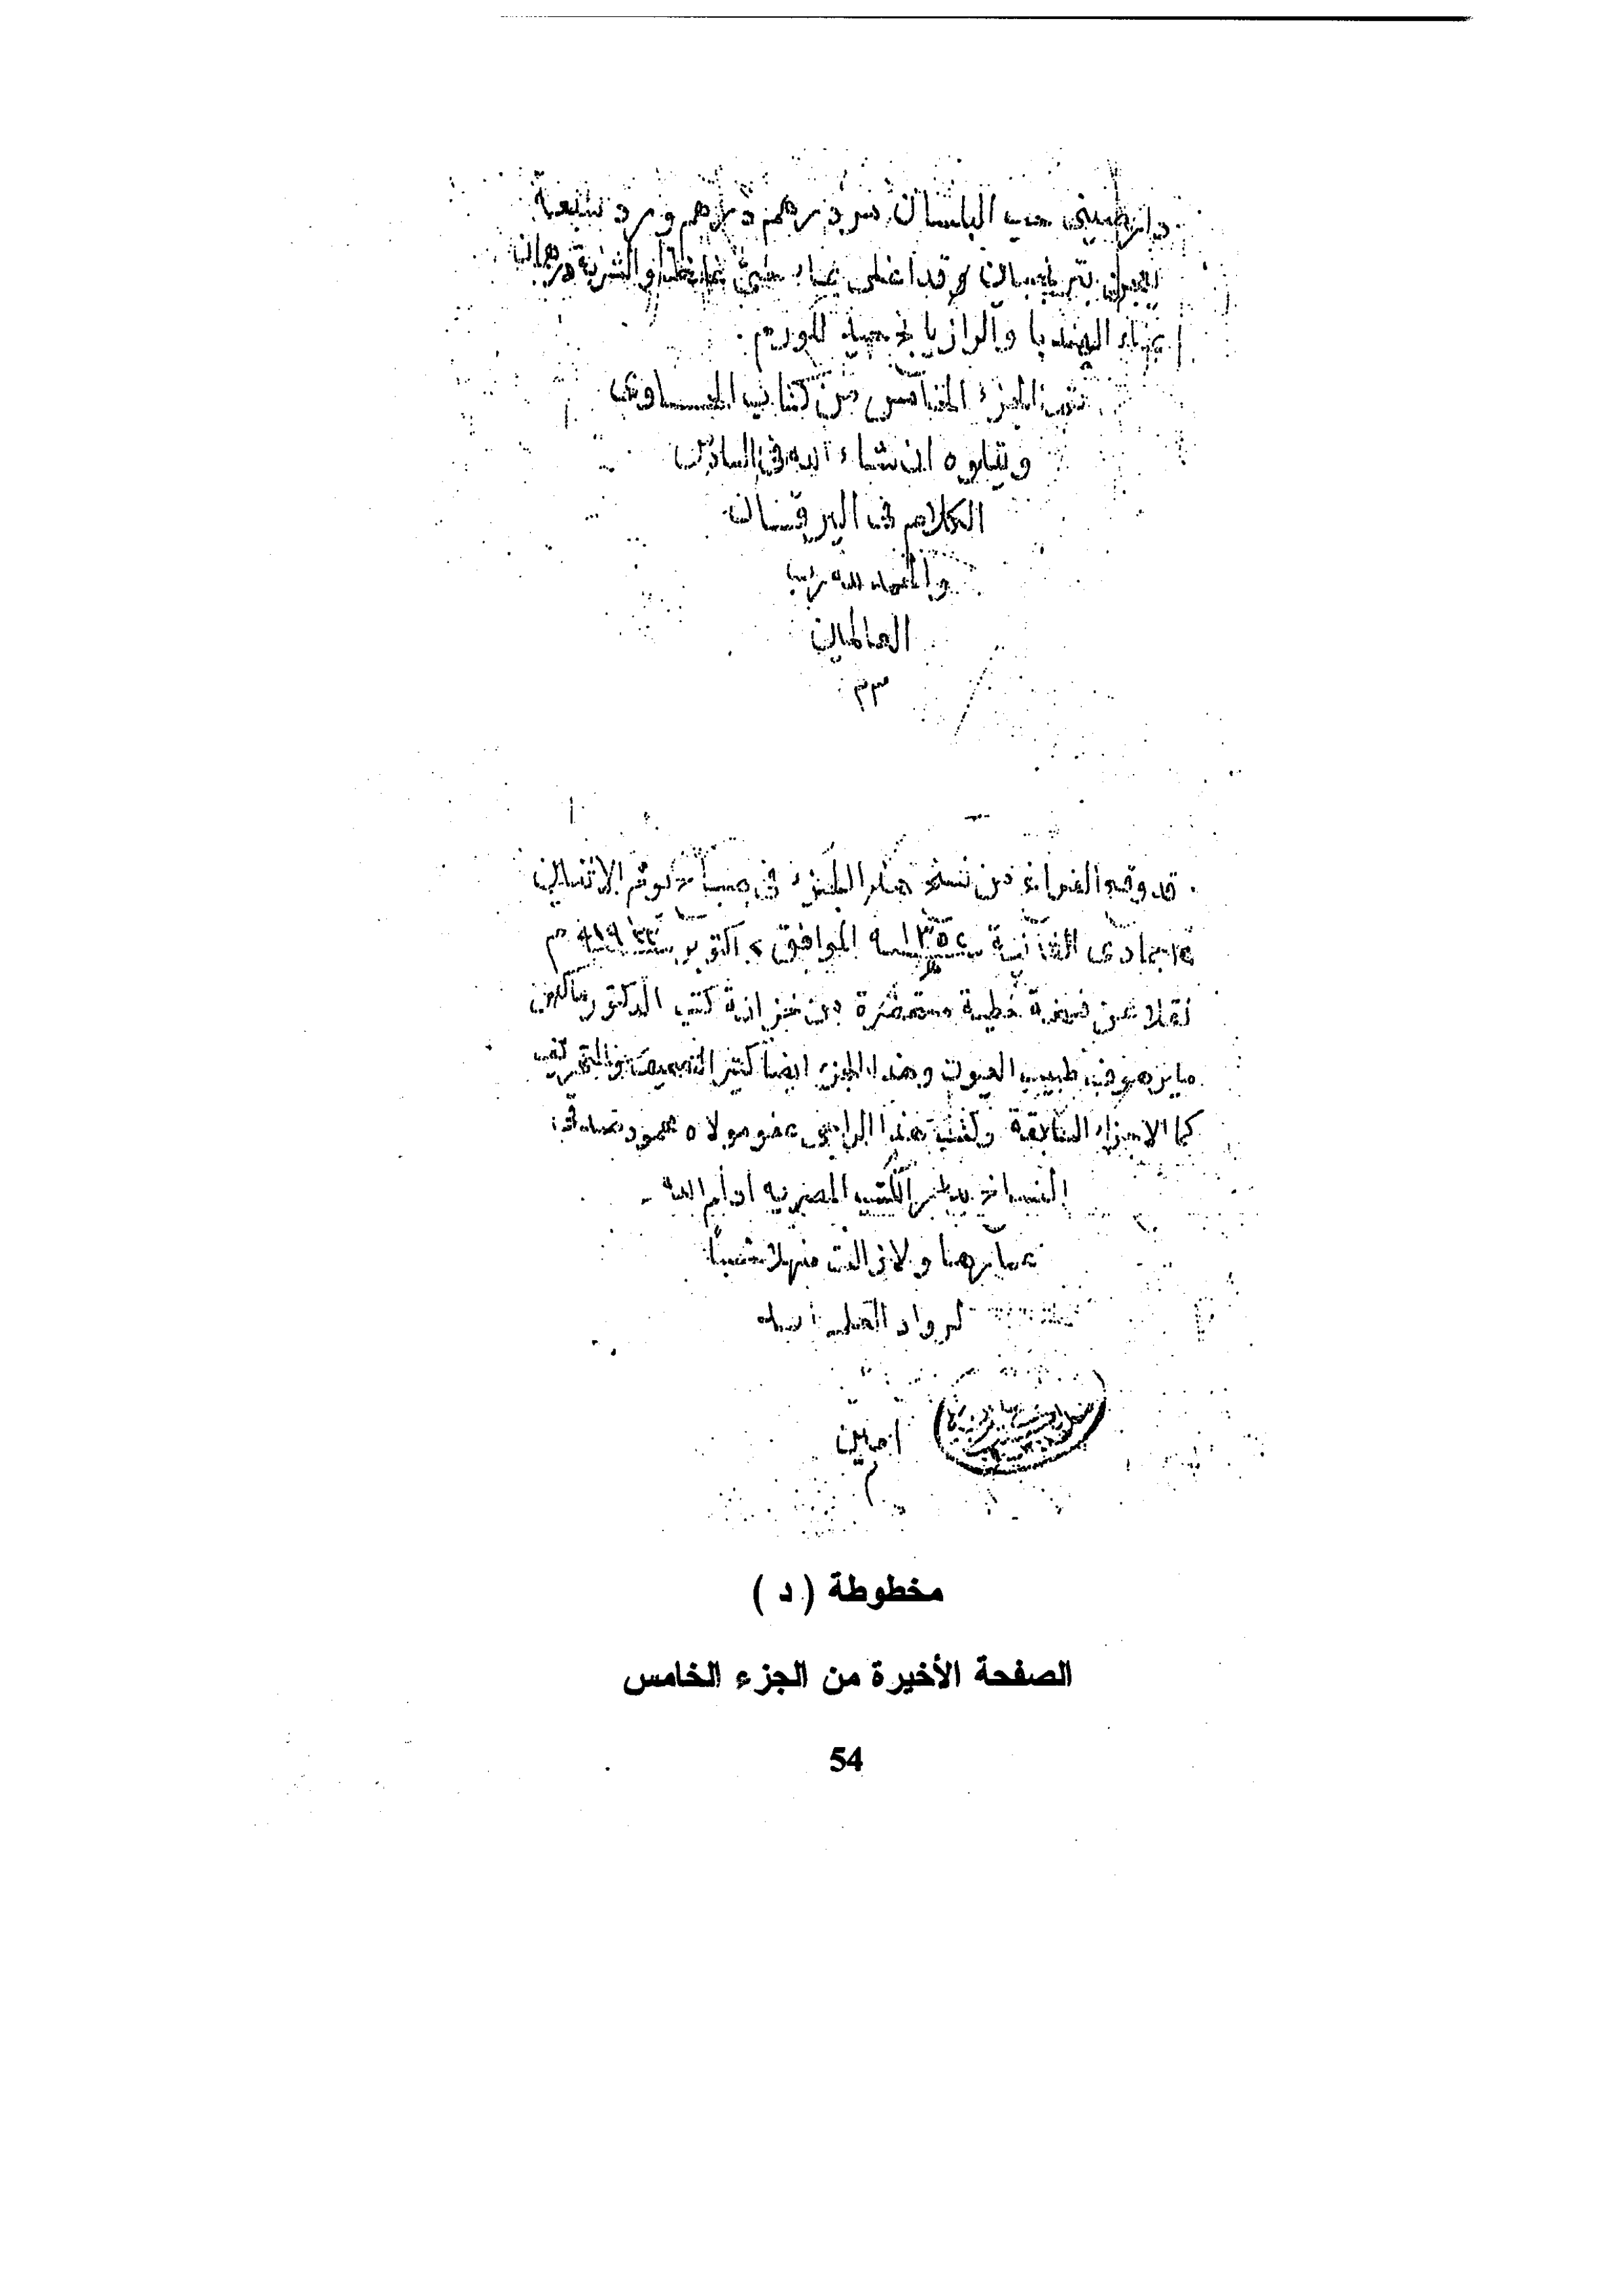 دارصيني حب البلسان من درهم درهم ورد سبعة
يعجن وقد اغلى والشربة درهمان
بماء الهندبا والرازيانج جيد للورم
تم الجزء الخامس من كتاب الحاوى
ويتلوه ان شاء الله فى السادس
الكلام فى اليرقان
والحمد لله رب
العالمين
٣٣
قد وقع الفراغ من نسخ هذا الجزء فى صباح يوم الاثنين
جمادى الثانية سنة ١٣٥٢ الموافق ٢ اكتوبر سنة ١٩٣٣ م
نقلا عن نسخة خطية من خزانة كتب الدكتور ماكس
مايرهوف طبيب العيون وهذا الجزء ايضا كثير التصحيف والتحريف
كما الاجزاء السابقة وكتبه هذا الراجى عفو مولاه محمود صدقى
النساخ بدار الكتب المصرية ادام الله
عمارهنا ولا زالت منهلا عذبا
لرواد العلم
امين
م
مخطوطة ( د )
الصفحة الأخيرة من الجزء الخامس
54